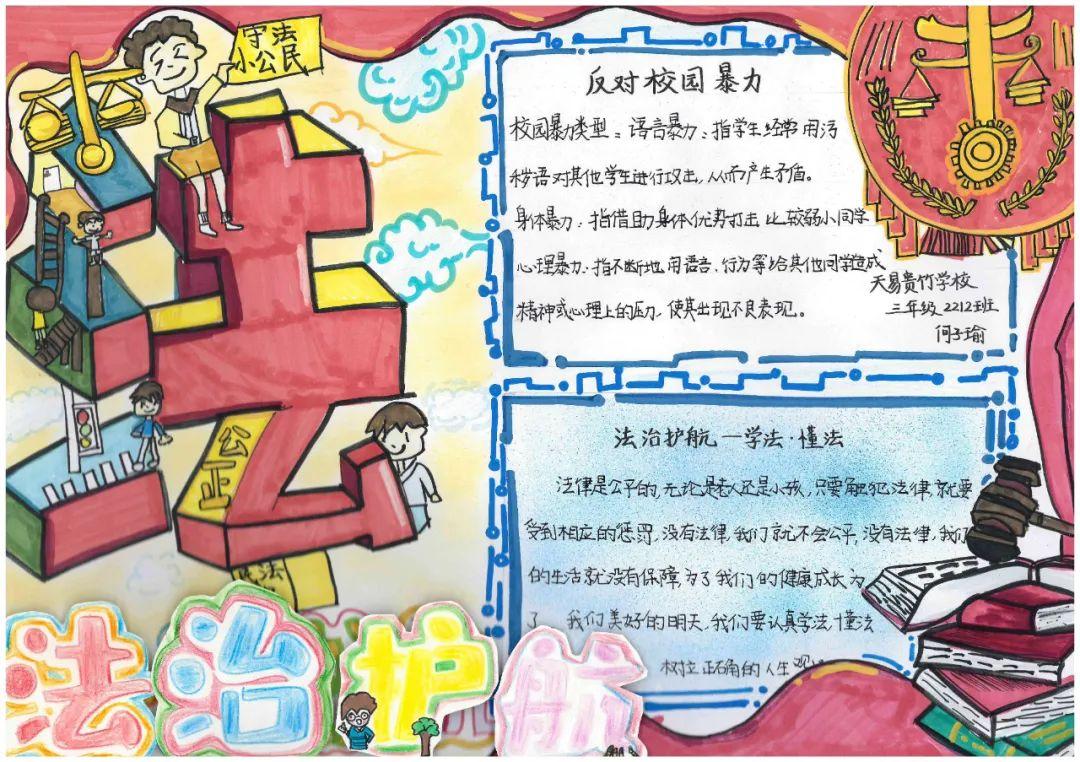 守法
小公民
法
公正
法
法治护航
反对校园暴力
校园暴力类型：语言暴力：指学生经常用污
秽语对其他学生进行攻击，从而产生矛盾。
身体暴力：指借助身体优势打击比较弱小同学
心理暴力：指不断地用语言、行为等给其他同学造成
精神或心理上的压力，使其出现不良表现。
天易贵竹学校
三年级 2212班
何子瑜
法治护航—学法·懂法
法律是公平的，无论是老人还是小孩，只要触犯法律，就要
受到相应的惩罚，没有法律，我们就不会公平，没有法律，我们
的生活就没有保障，为了我们的健康成长为
了 我们美好的明天，我们要认真学法，懂法
树立正确的人生观